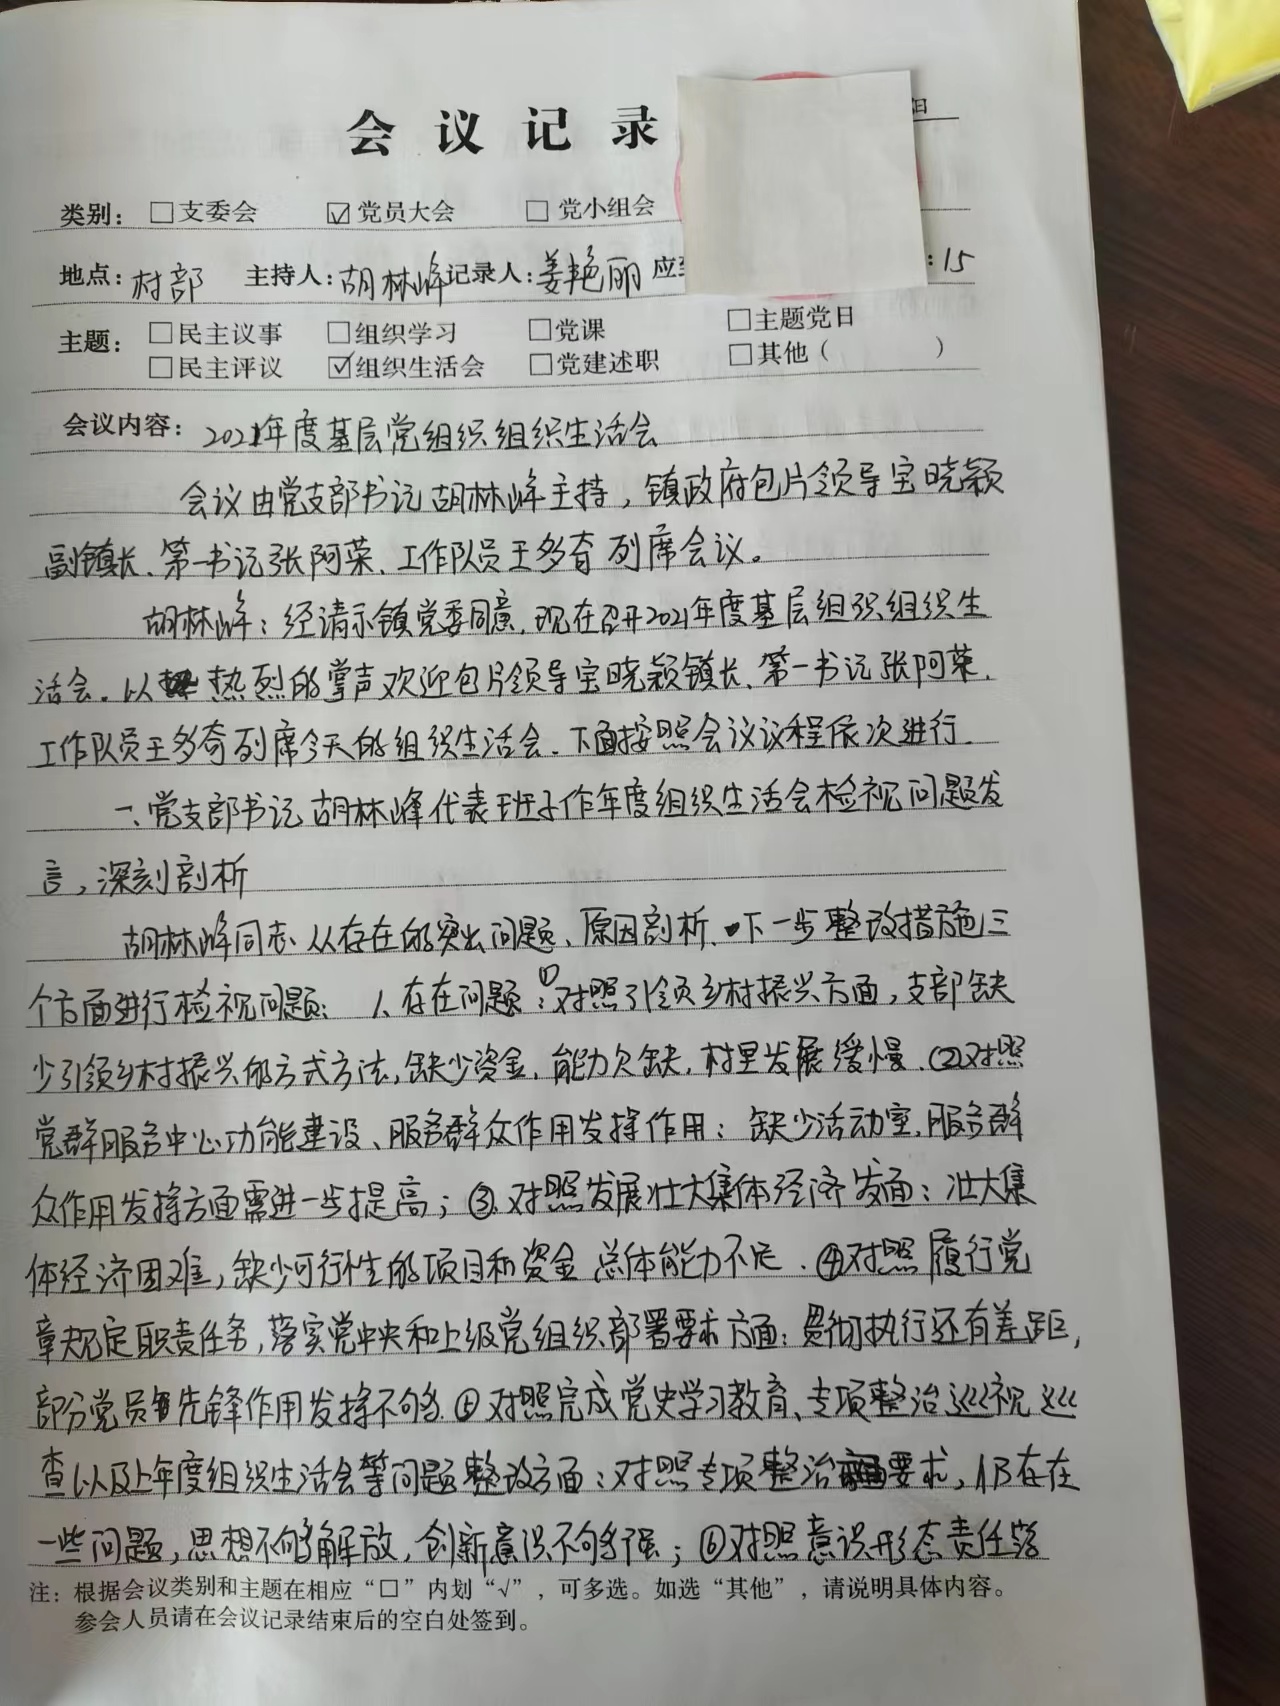 会议记录
日
类别：□支委会 ☑党员大会 □党小组会
地点：村部 主持人：胡林峰 记录人：姜艳丽 应 ：15
主题：□民主议事 □组织学习 □党课 □主题党日
□民主评议 ☑组织生活会 □党建述职 □其他（ ）
会议内容：2021年度基层党组织组织生活会
会议由党支部书记胡林峰主持，镇政府包片领导宝晓颖
副镇长、第一书记张阿荣、工作队员王多奇列席会议。
胡林峰：经请示镇党委同意，现在召开2021年度基层组织组织生
活会。以热烈的掌声欢迎包片领导宝晓颖镇长、第一书记张阿荣、
工作队员王多奇列席今天的组织生活会。下面按照会议议程依次进行。
一、党支部书记胡林峰代表班子作年度组织生活会检视问题发
言，深刻剖析
胡林峰同志从存在的突出问题、原因剖析、下一步整改措施三
个方面进行检视问题：1、存在问题：①对照引领乡村振兴方面，支部缺
少引领乡村振兴的方式方法，缺少资金，能力欠缺，村里发展缓慢。②对照
党群服务中心功能建设、服务群众作用发挥作用：缺少活动室，服务群
众作用发挥方面需进一步提高；③对照发展壮大集体经济发面：壮大集
体经济困难，缺少可行性的项目和资金总体能力不足。④对照履行党
章规定职责任务，落实党中央和上级党组织部署要求方面：贯彻执行还有差距，
部分党员先锋作用发挥不够⑤对照完成党史学习教育、专项整治巡视巡
查以及上年度组织生活会等问题整改方面：对照专项整治要求，仍存在
一些问题，思想不够解放，创新意识不够强；⑥对照意识形态责任落
注：根据会议类别和主题在相应“□”内划“√”，可多选。如选“其他”，请说明具体内容。
参会人员请在会议记录结束后的空白处签到。